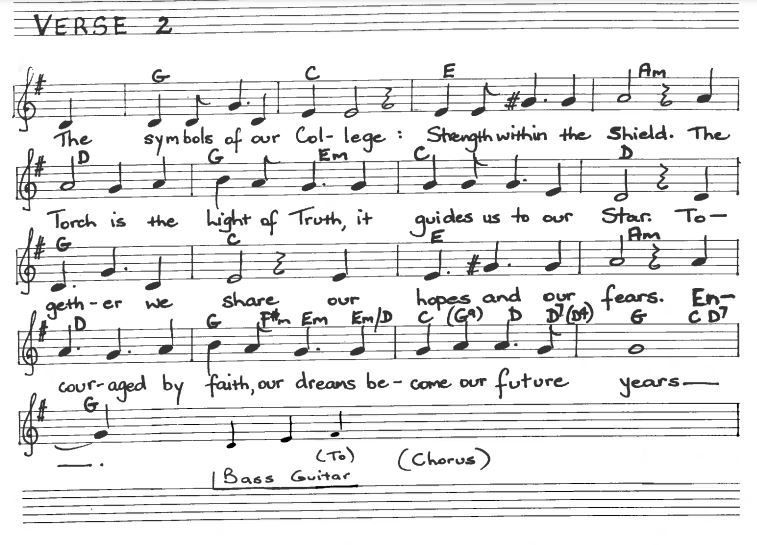 VERSE 2
G C E Am
The symbols of our Col-lege: Strength within the Shield. The
D G Em C D
Torch is the Light of Truth, it guides us to our Star. To-
G C E Am
geth-er we share our hopes and our fears. En-
D G F#m Em Em/D C (G9) D D7(D9) G C D7
cour-aged by faith, our dreams be-come our future years—
G
(To) (Chorus)
Bass Guitar